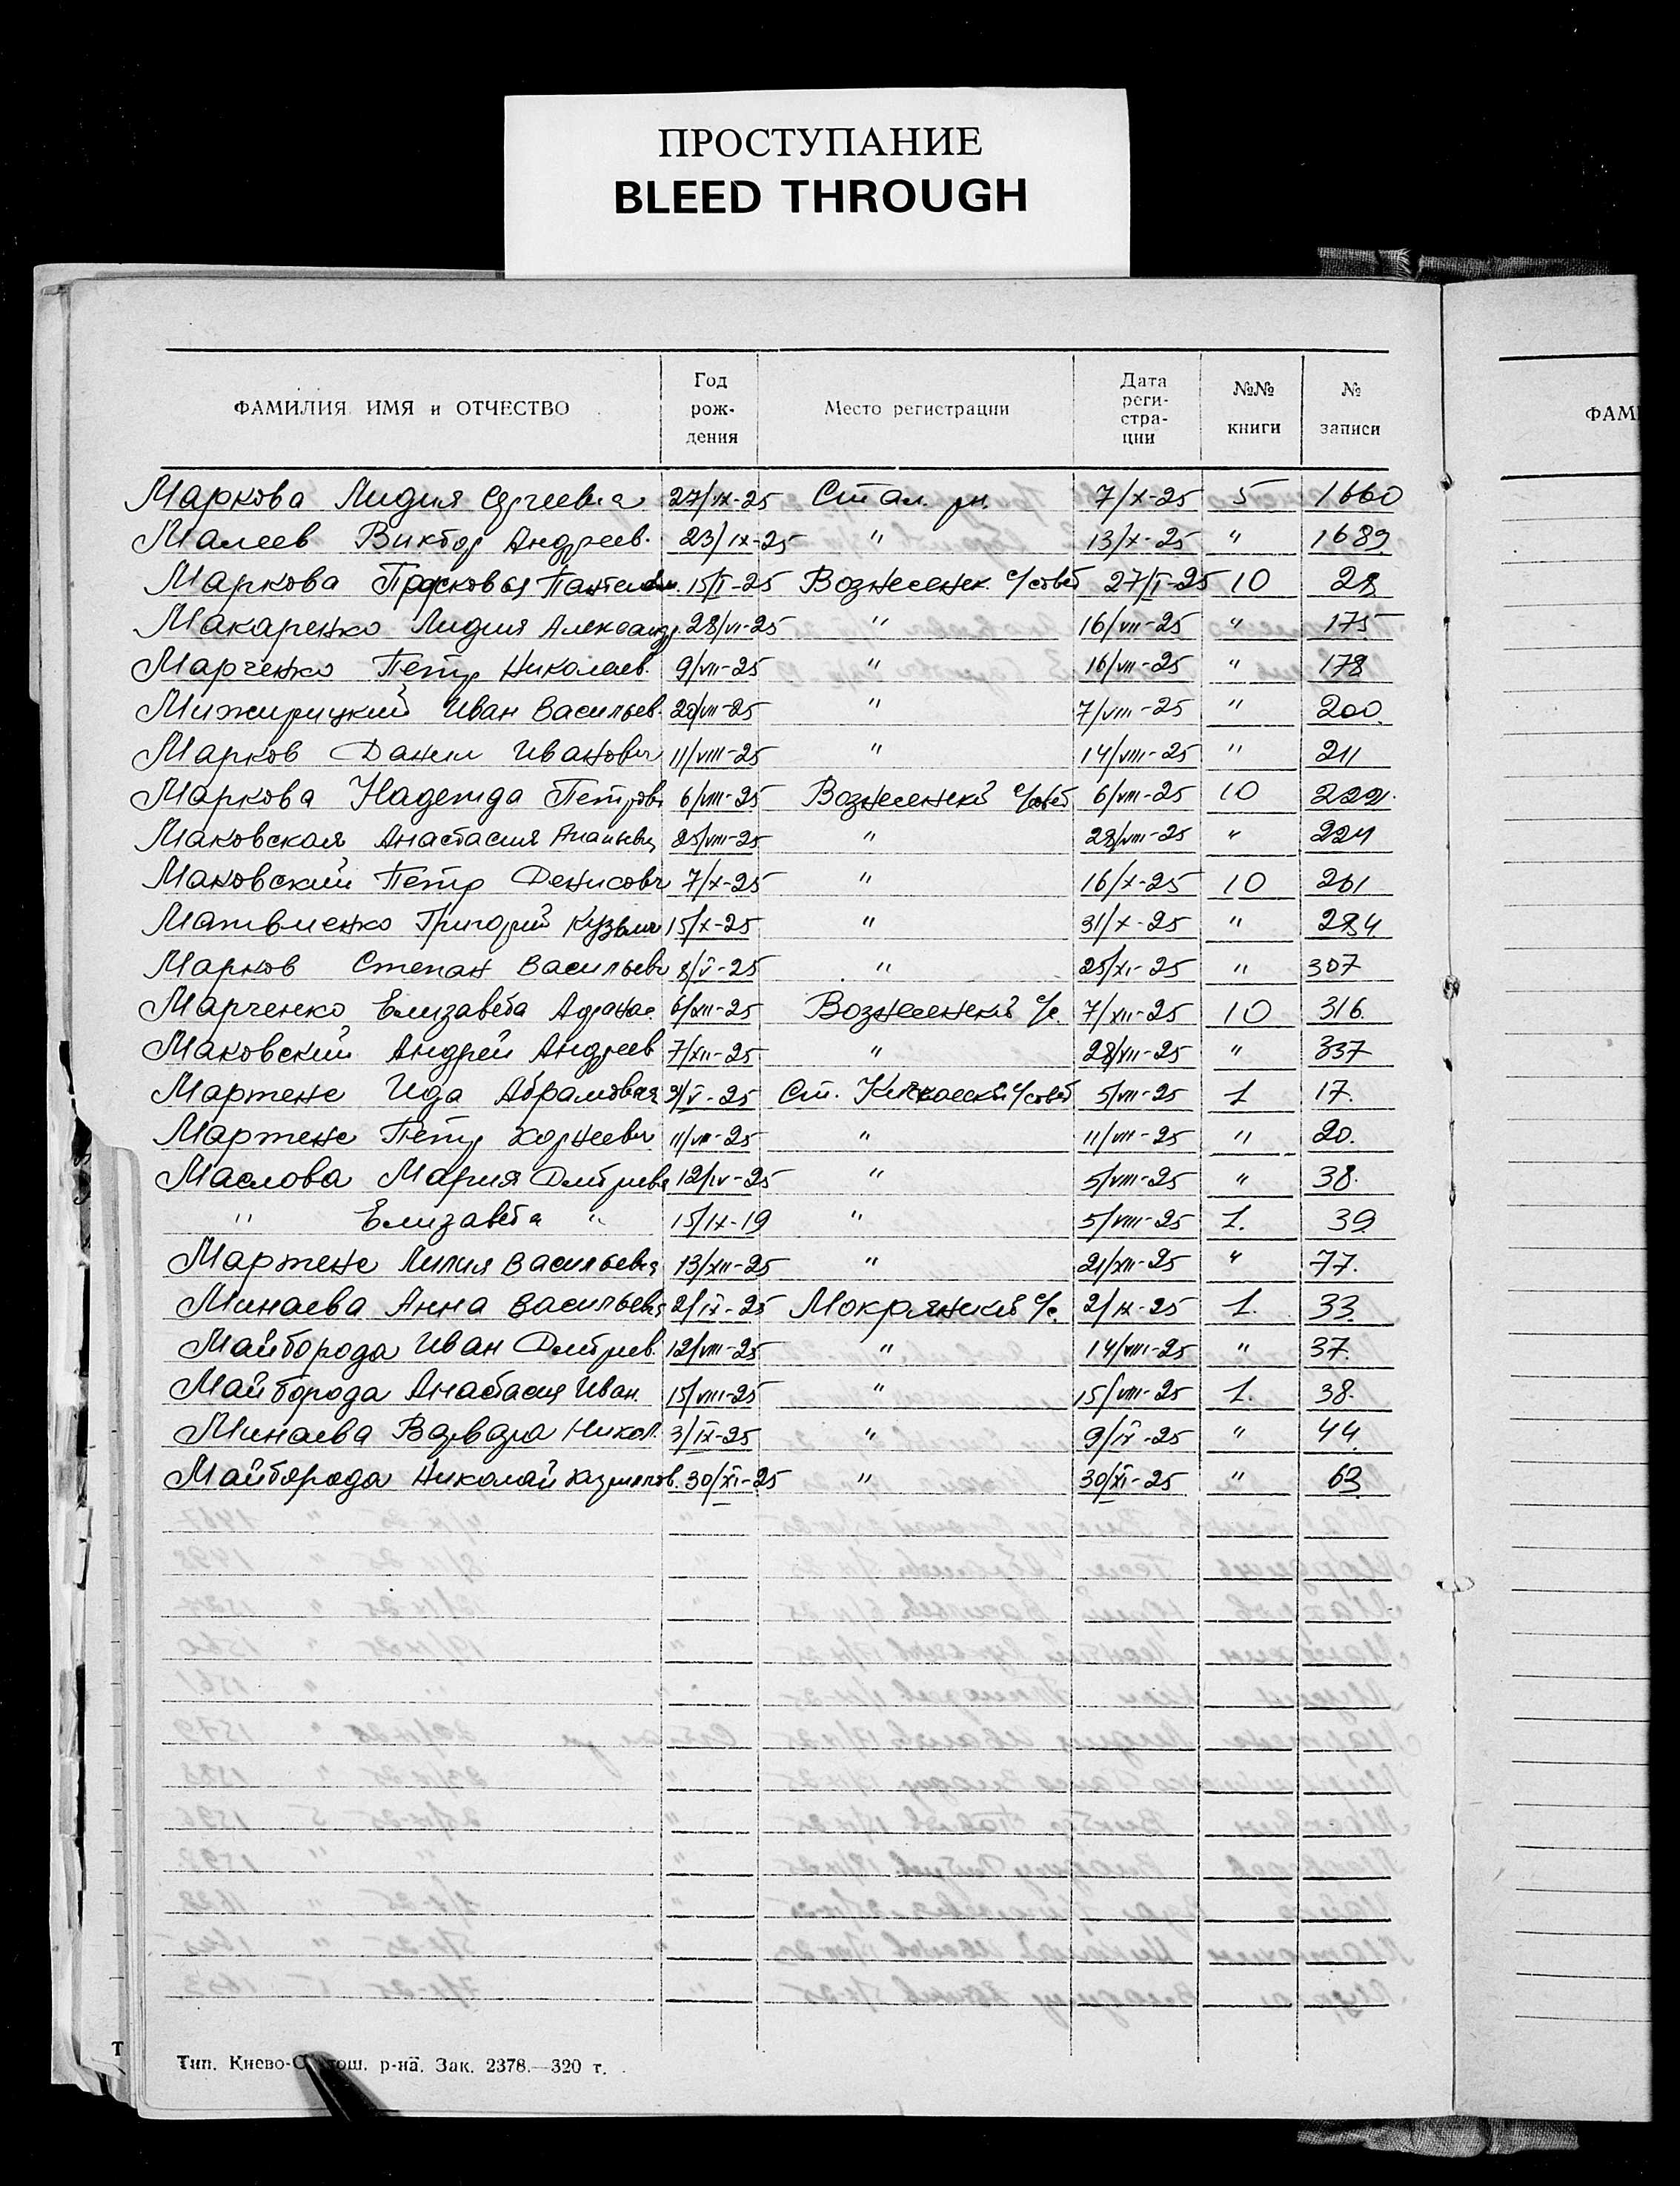 ПРОСТУПАНИЕ
BLEED THROUGH
ФАМИЛИЯ ИМЯ и ОТЧЕСТВО Год рож- дения Место регистрации Дата реги- стра- ции №№ книги № записи
ФАМ
Маркова Лидия Сергеевна 27/IX-25 Стал. рн. 7/X-25 5 1660
Малеев Виктор Андреев. 23/IX-25 " 13/X-25 " 1689
Маркова Прасковья 15/I-25 Вознесенск. с/совет 27/I-25 10 28
Макаренко Лидия Александр. 28/VI-25 " 16/VII-25 " 175
Марченко Петр Николаев. 9/VII-25 " 16/VII-25 " 178
Мижирицкий Иван Васильев. 20/VII-25 " 7/VIII-25 " 200.
Марков Данил Иванович 11/VIII-25 " 14/VIII-25 " 211
Маркова Надежда Петровн 6/VIII-25 Вознесенский с/совет 6/VIII-25 10
Маковская Анастасия 25/VIII-25 " 28/VIII-25 " 224
Маковский Петр Денисович 7/X-25 " 16/X-25 10 261
Матвиенко Григорий Кузьмич 15/X-25 " 31/X-25 " 284
Марков Степан Васильевич 8/V-25 " 25/XI-25 " 307
Марченко Елизавета Афанас. 6/XII-25 Вознесенский с/с. 7/XII-25 10 316.
Маковский Андрей Андреев 7/XII-25 " 28/VII-25 " 337
Мартенс Ида Абрамовна 31/V-25 Ст. Кичкасский с/совет 5/VII-25 1 17.
Мартенс Петр Корнеевич 11/VII-25 " 11/VII-25 " 20.
Маслова Мария Дмитриевна 12/IV-25 " 5/VIII-25 " 38.
" Елизавета " 15/IX-19 " 5/VIII-25 1. 39
Мартенс Лилия Васильевна 13/XII-25 " 21/XII-25 " 77.
Минаева Анна Васильевна 2/IX-25 Мокрянский с/с. 2/IX-25 1. 33.
Майборода Иван Дмитриев. 12/VIII-25 " 14/VIII-25 " 37.
Майборода Анастасия Иван. 15/VIII-25 " 15/VIII-25 1. 38.
Минаева Варвара Никол. 3/IX-25 " 9/IX-25 " 44.
Майборода Николай 30/XI-25 " 30/XI-25 " 63
Тип. Киево-С тош. р-на. Зак. 2378.—320 т.
Т